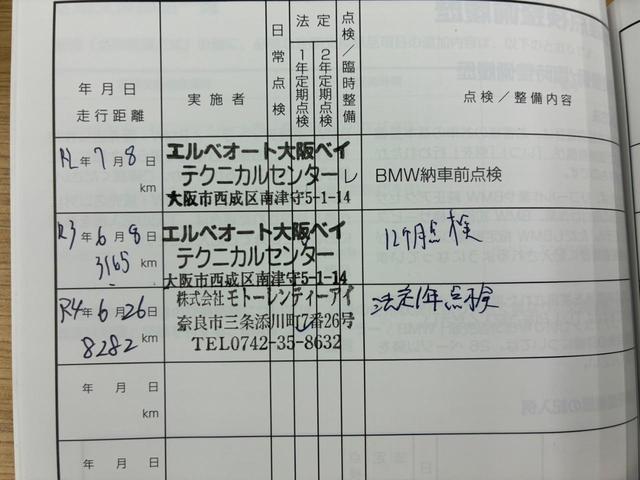 年月日
走行距離
実施者
日常点検
法定
1年定期点検
2年定期点検
点検/臨時整備
点検/整備内容
年7月8日
km
エルベオート大阪ベイ
テクニカルセンター
大阪市西成区南津守5-1-14
レ
BMW納車前点検
R3年6月8日
3165 km
エルベオート大阪ベイ
テクニカルセンター
大阪市西成区南津守5-1-14
12ヶ月点検
R4年6月26日
8282 km
株式会社モトーレンティーアイ
奈良市三条添川町7番26号
TEL0742-35-8632
レ
法定1年点検
年月日
km
年月日